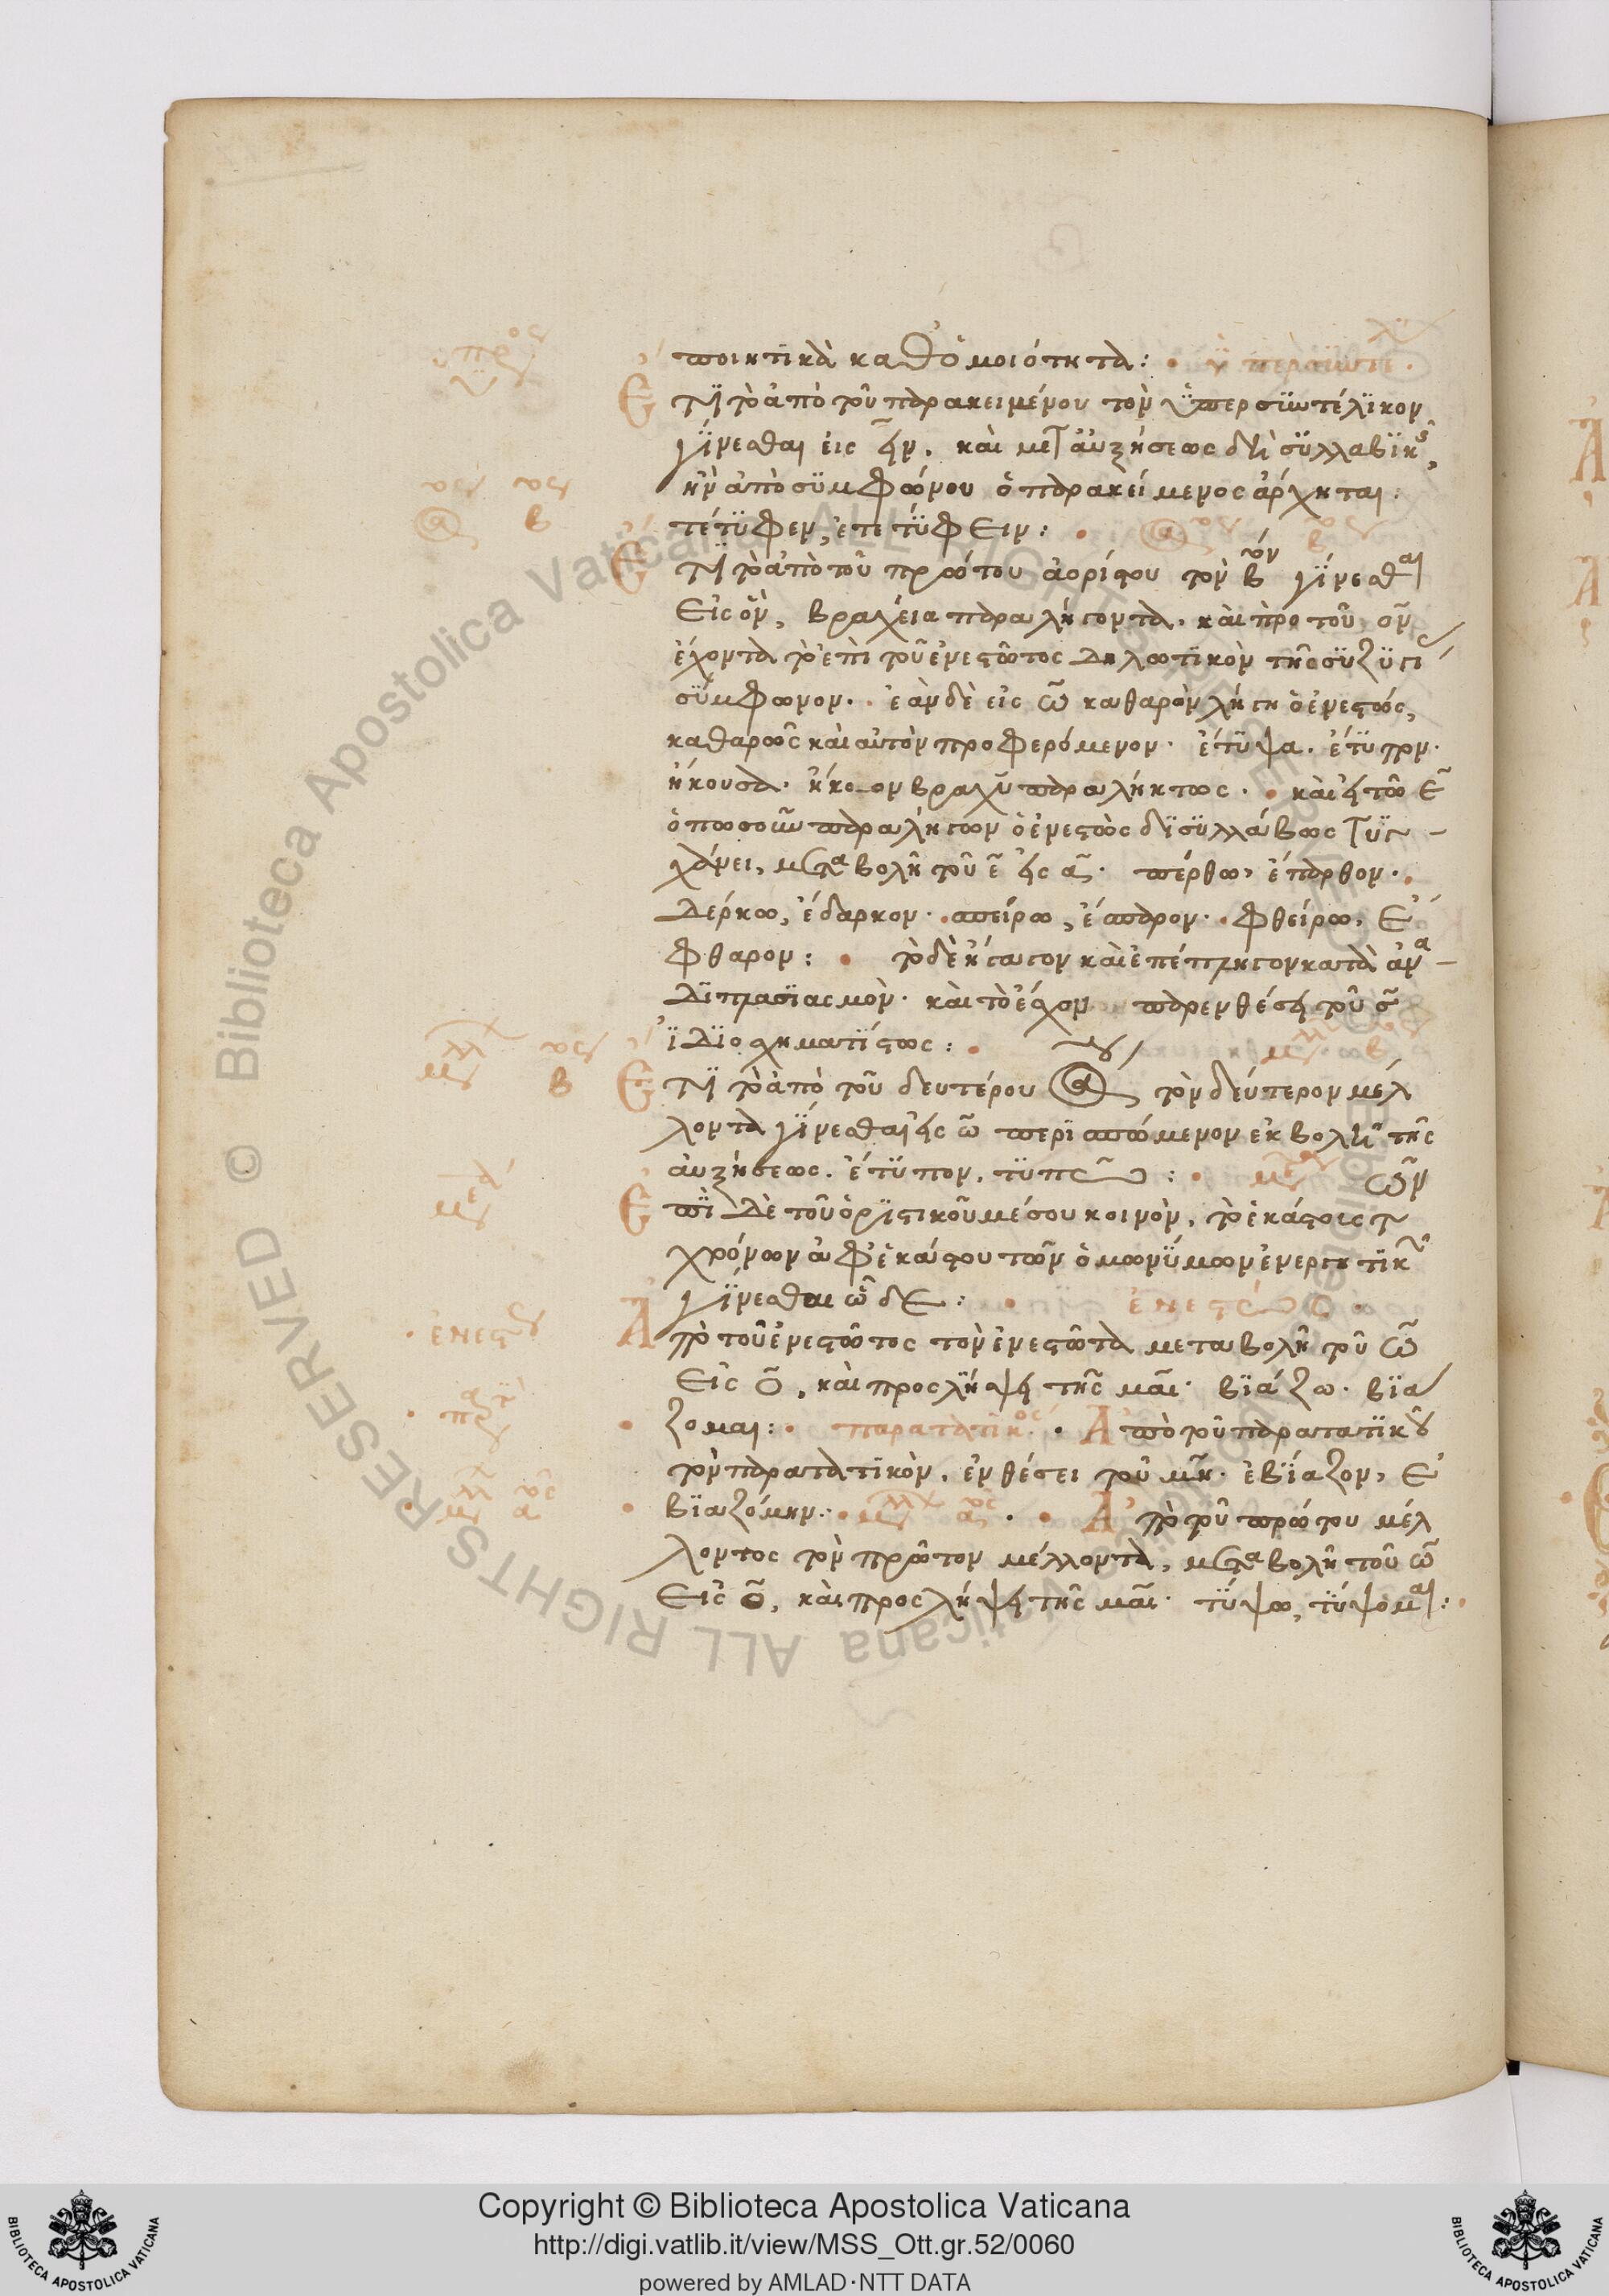 ποιητικὰ καθ' ὁμοιότητα:
Ἔτι τὸ ἀπὸ τοῦ παρακειμένου τὸν ὑπερσυντέλικον
γίνεσθαι εἰς ειν. καὶ μετ' αὐξήσεως δὲ συλλαβικῆς,
ἢν ἀπὸ συμφώνου ὁ παρακείμενος ἄρχηται:
τέτυφεν, ἐτετύφειν:
Ἔτι τὸ ἀπὸ τοῦ πρώτου ἀορίστου τὸν βον γίνεσθαι
εἰς ον, βραχεία παραλήγοντα. καὶ πρὸ τοῦ ον
ἔχοντα τὸ ἐπὶ τοῦ ἐνεστῶτος δηλωτικὸν τῆς συζυγίας
σύμφωνον. ἐὰν δὲ εἰς ω καθαρὸν λήγη ὁ ἐνεστώς,
καθαρῶς καὶ αὐτὸν προφερόμενον. ἔτυψα. ἔτυπον.
ἤκουσα. ἤκοον βραχυπαραλήκτως. καὶ ει τῶ ε
ὁπωσοῦν παραλήγων ὁ ἐνεστὼς δισυλλάβως τυγ-
χάνει, μεταβολῆ τοῦ ε εἰς α. πέρθω, ἔπαρθον.
δέρκω, ἔδαρκον. σπείρω, ἔσπαρον. φθείρω, ἔ
φθαρον: τὸ δὲ ἤγαγον καὶ ἐπέπληγον κατὰ ἀνα-
διπλασιασμόν. καὶ τὸ ἔσχον παρενθέσει τοῦ σ
ἰδιοσχηματίστως:
Ἔτι τὸ ἀπὸ τοῦ δευτέρου τὸν δεύτερον μέλ
λοντα γίνεσθαι εἰς ω περισπώμενον ἐκβολῆ τῆς
αὐξήσεως. ἔτυπον. τυπῶ:
Ἐπὶ δὲ τοῦ ὁριστικοῦ μέσου κοινὸν, τὸ ἑκάστοις τῶν
χρόνων ἀφ' ἑκάστου τῶν ὁμωνύμων ἐνεργητικῶν
γίνεσθαι ὧδε: ἐνεστώς
Ἀπὸ τοῦ ἐνεστῶτος τὸν ἐνεστῶτα μεταβολῆ τοῦ ω
εἰς ο, καὶ προσλήψει τῆς μαι. βιάζω. βιά
ζομαι: παρατατικός. Ἀπὸ τοῦ παρατατικοῦ
τὸν παρατατικὸν, ἐνθέσει τοῦ μη. ἐβίαζον, ἐ
βιαζόμην. Ἀπὸ τοῦ πρώτου μέλ
λοντος τὸν πρῶτον μέλλοντα, μεταβολῆ τοῦ ω
εἰς ο, καὶ προσλήψει τῆς μαι. τύψω, τύψομαι:
Copyright © Biblioteca Apostolica Vaticana
http://digi.vatlib.it/view/MSS_Ott.gr.52/0060
powered by AMLAD·NTT DATA
BIBLIOTECA APOSTOLICA VATICANA
BIBLIOTECA APOSTOLICA VATICANA
© Biblioteca Apostolica Vaticana ALL RIGHTS RESERVED